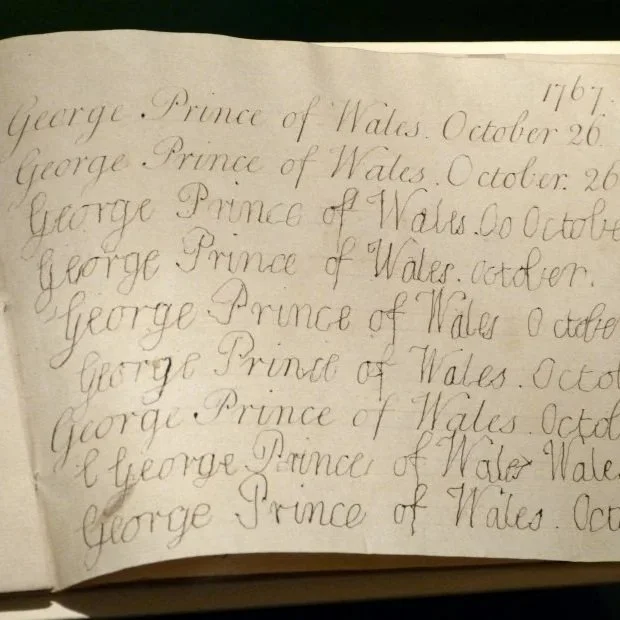 1767.
George Prince of Wales. October 26.
George Prince of Wales. October. 26
George Prince of Wales. Oo Octobe
George Prince of Wales. october.
George Prince of Wales Octobe
George Prince of Wales. Octo
George Prince of Wales. Octob
l George Prince of Wales Wales
George Prince of Wales. Oct